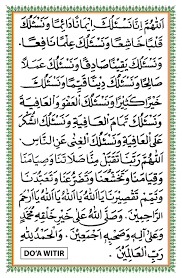 اَللّٰهُمَّ اِنَّا نَسْئَلُكَ اِيْمَانًا دَائِمًا وَنَسْئَلُكَ
قَلْبًا خَاشِعًا وَنَسْئَلُكَ عِلْمًا نَافِعًا.
وَنَسْئَلُكَ يَقِيْنًا صَادِقًا وَنَسْئَلُكَ عَمَلًا
صَالِحًا وَنَسْئَلُكَ دِيْنًا قَيِّمًا وَنَسْئَلُكَ
خَيْرًا كَثِيْرًا وَنَسْئَلُكَ الْعَفْوَ وَالْعَافِيَةَ
وَنَسْئَلُكَ تَمَامَ الْعَافِيَةِ وَنَسْئَلُكَ الشُّكْرَ
عَلَى الْعَافِيَةِ وَنَسْئَلُكَ الْغِنٰى عَنِ النَّاسِ.
اَللّٰهُمَّ رَبَّنَا تَقَبَّلْ مِنَّا صَلَاتَنَا وَصِيَامَنَا
وَقِيَامَنَا وَتَخَشُّعَنَا وَتَضَرُّعَنَا وَتَعَبُّدَنَا
وَتَمِّمْ تَقْصِيْرَنَا يَا اَللّٰهُ يَا اَللّٰهُ يَا اَرْحَمَ
الرَّاحِمِيْنَ. وَصَلَّى اللّٰهُ عَلٰى خَيْرِ خَلْقِهِ مُحَمَّدٍ
وَعَلٰى اٰلِهِ وَصَحْبِهِ اَجْمَعِيْنَ. وَالْحَمْدُ لِلّٰهِ
رَبِّ الْعَالَمِيْنَ.
DO'A WITIR